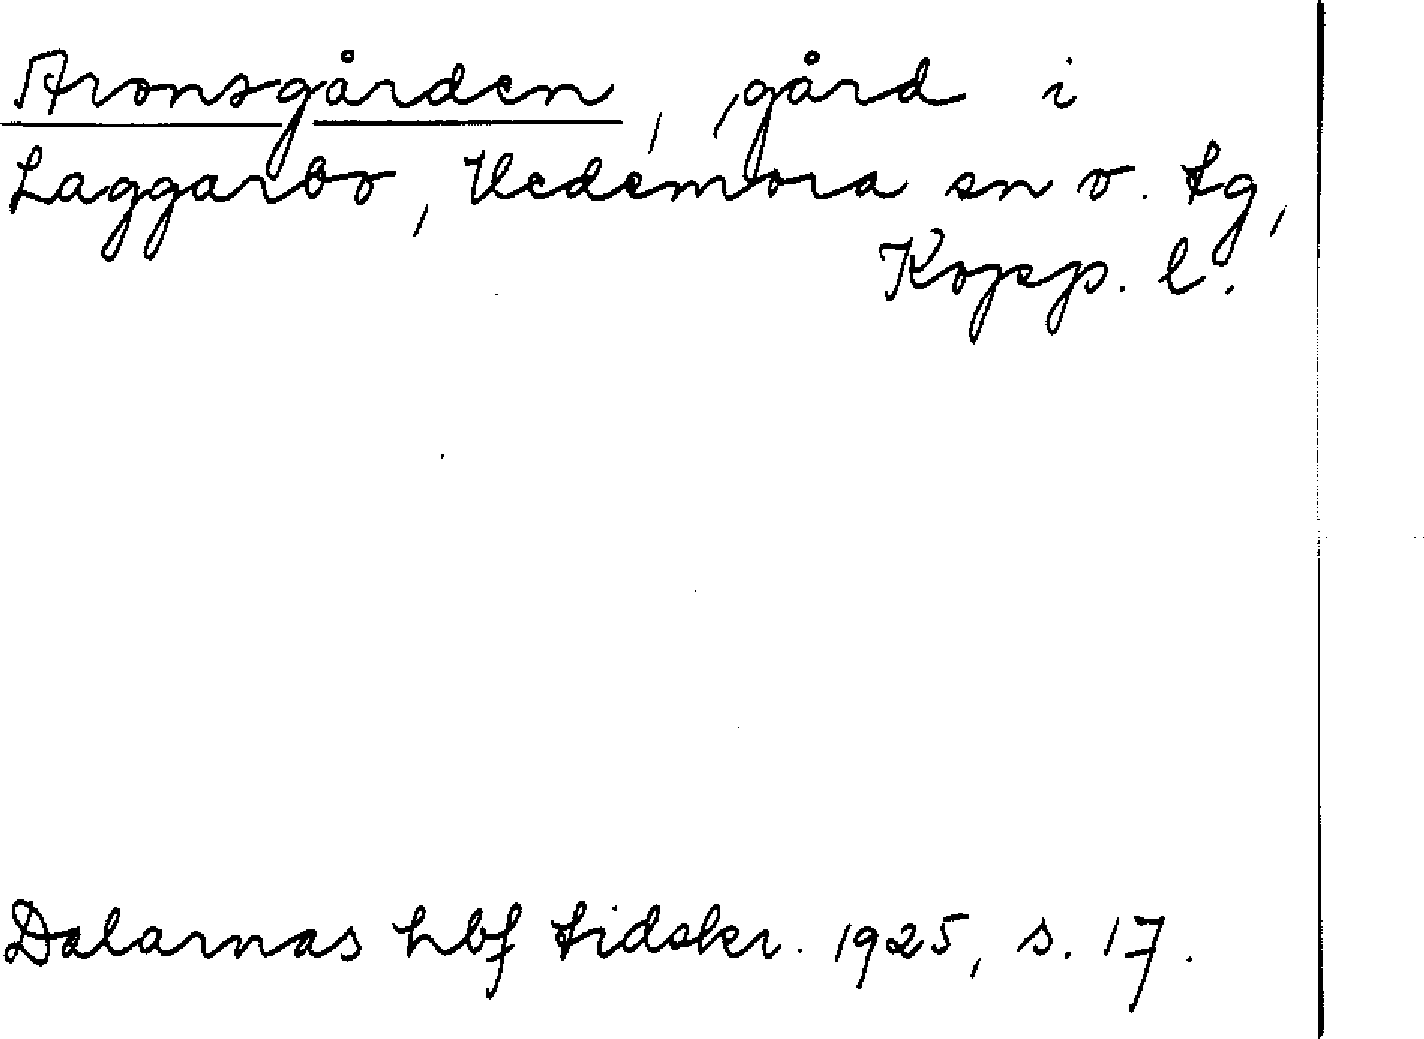 Aronsgården, gård i
Laggarbo, Hedemora sn o. tg,
Kopp. l.
Dalarnas hbf tidskr. 1925, s. 17.